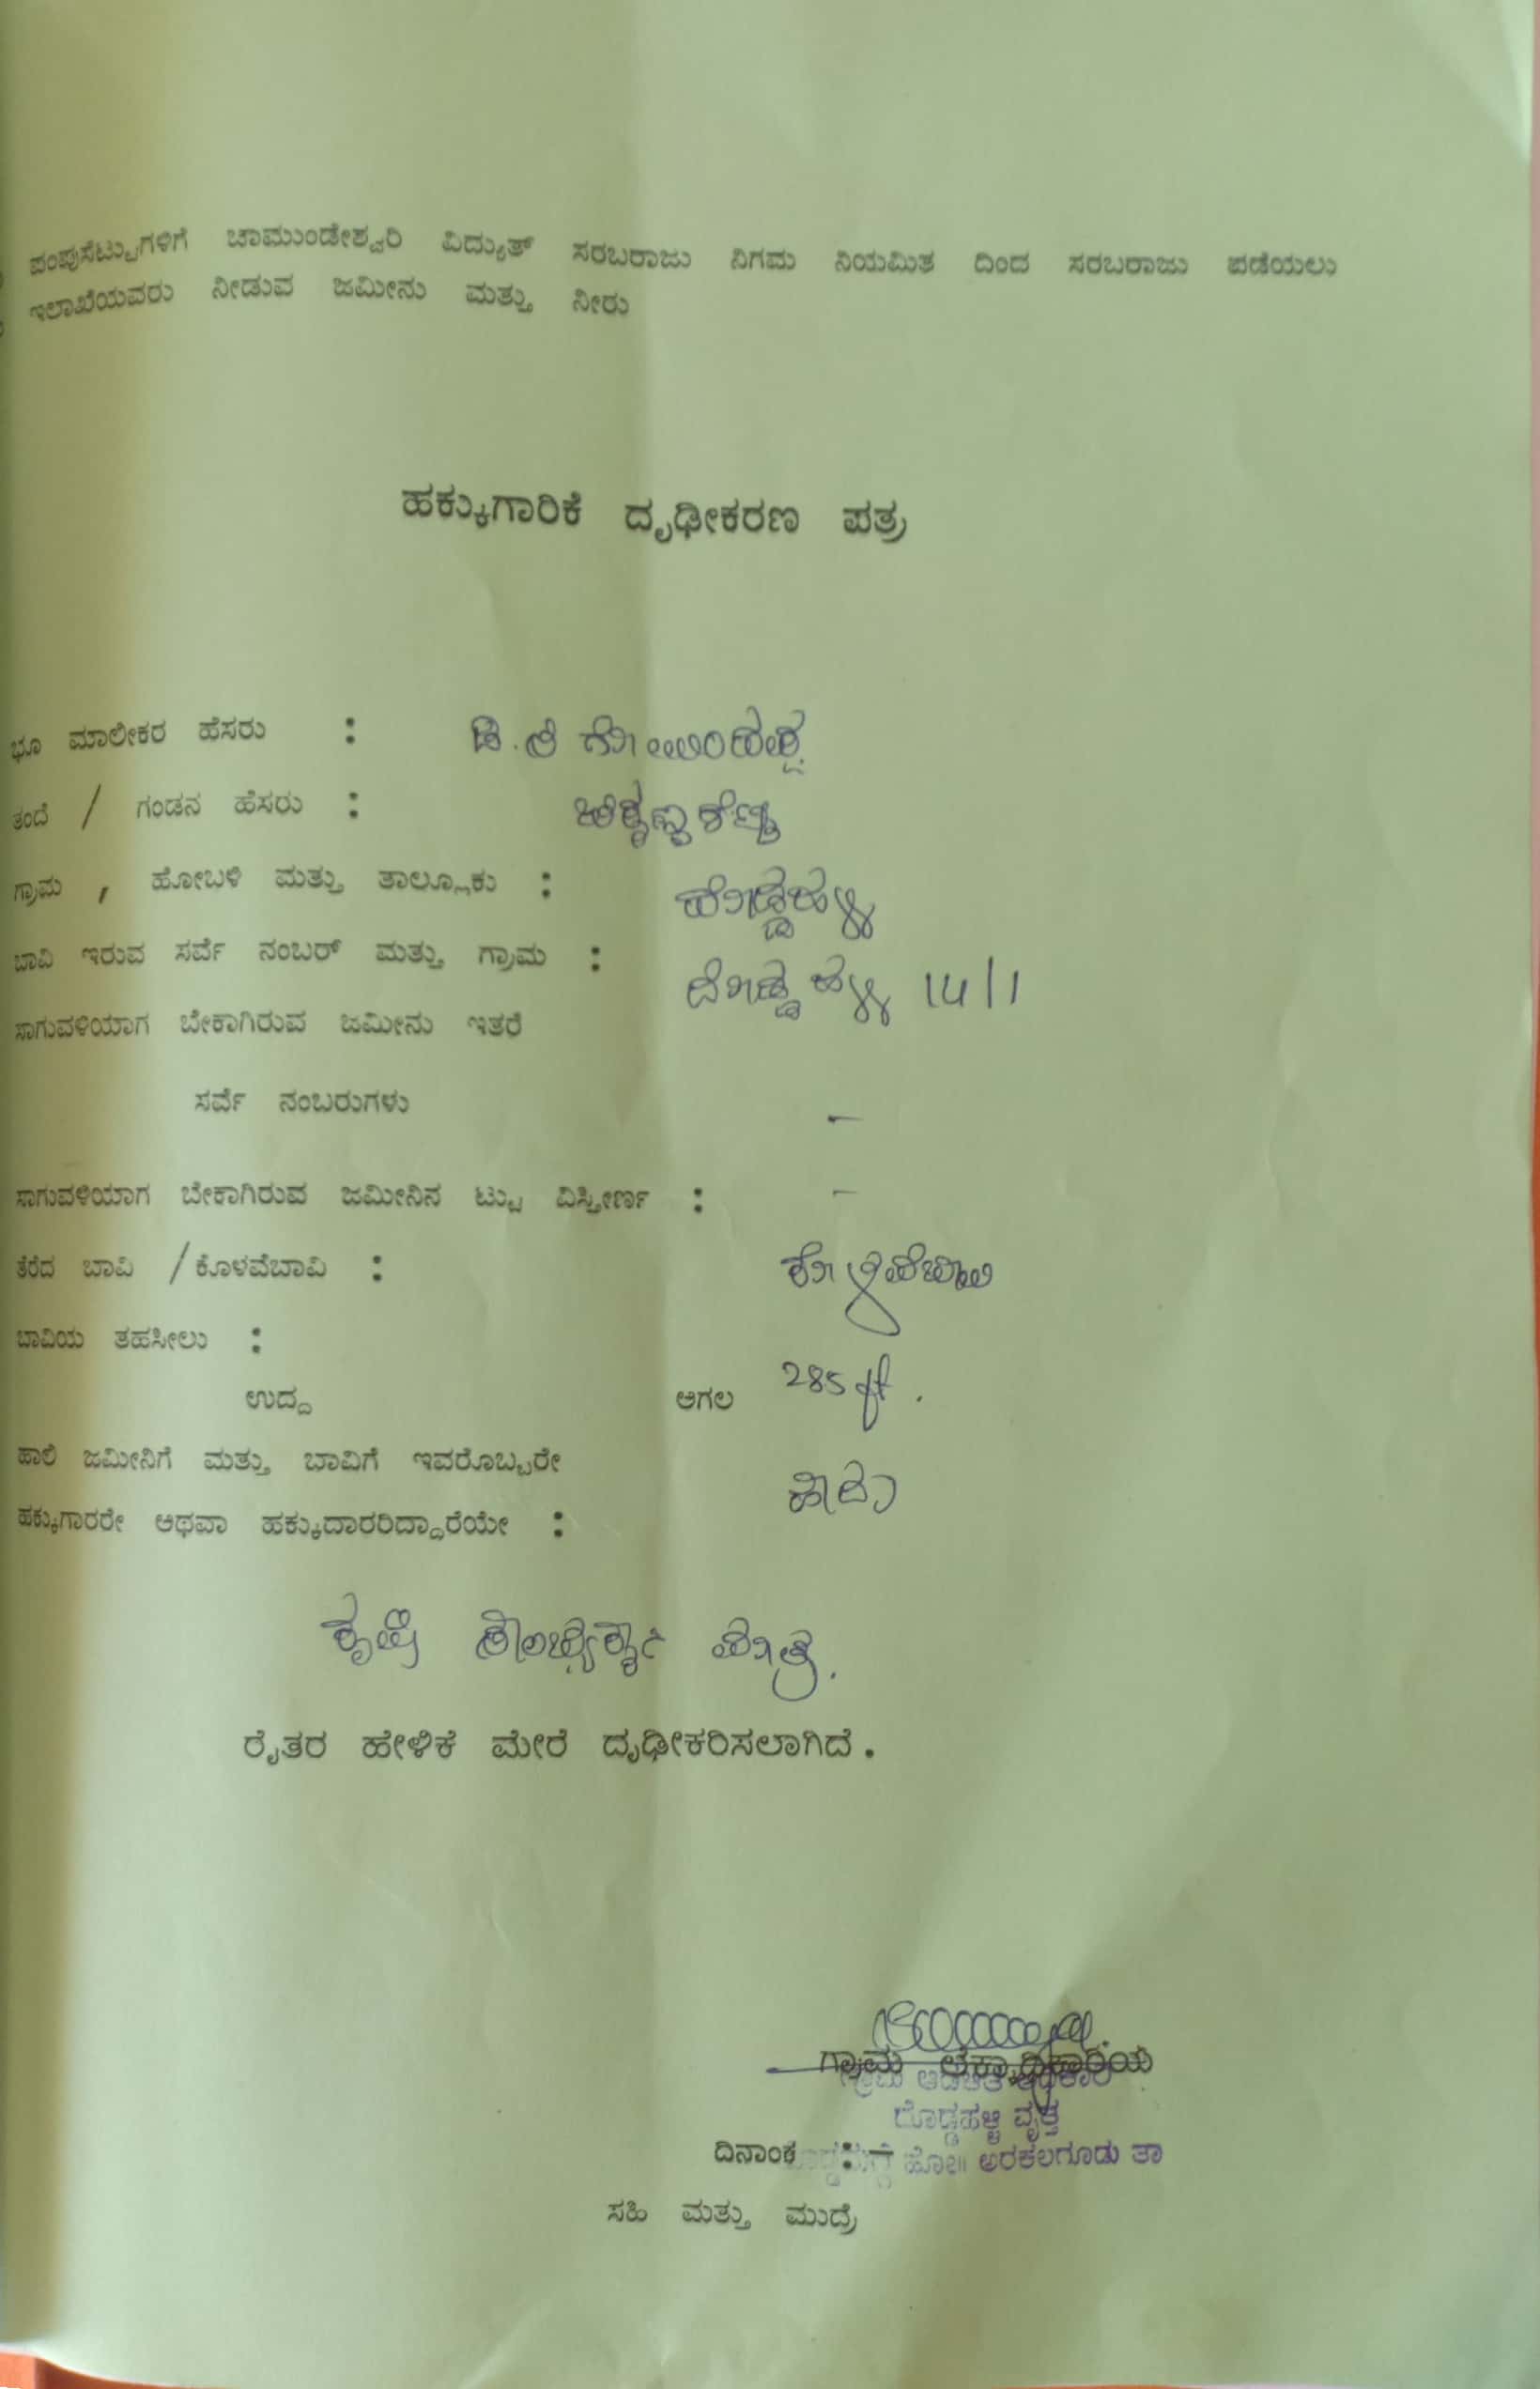 ಪಂಪುಸೆಟ್ಟುಗಳಿಗೆ ಚಾಮುಂಡೇಶ್ವರಿ ವಿದ್ಯುತ್ ಸರಬರಾಜು ನಿಗಮ ನಿಯಮಿತ ದಿಂದ ಸರಬರಾಜು ಪಡೆಯಲು
ಇಲಾಖೆಯವರು ನೀಡುವ ಜಮೀನು ಮತ್ತು ನೀರು
ಹಕ್ಕುಗಾರಿಕೆ ದೃಢೀಕರಣ ಪತ್ರ
ಭೂ ಮಾಲೀಕರ ಹೆಸರು :
ತಂದೆ / ಗಂಡನ ಹೆಸರು :
ಗ್ರಾಮ , ಹೋಬಳಿ ಮತ್ತು ತಾಲ್ಲೂಕು : ದೊಡ್ಡಹಳ್ಳಿ
ಬಾವಿ ಇರುವ ಸರ್ವೆ ನಂಬರ್ ಮತ್ತು ಗ್ರಾಮ : ದೊಡ್ಡಹಳ್ಳಿ 14/1
ಸಾಗುವಳಿಯಾಗ ಬೇಕಾಗಿರುವ ಜಮೀನು ಇತರೆ
ಸರ್ವೆ ನಂಬರುಗಳು —
ಸಾಗುವಳಿಯಾಗ ಬೇಕಾಗಿರುವ ಜಮೀನಿನ ಟ್ಟು ವಿಸ್ತೀರ್ಣ : —
ತೆರೆದ ಬಾವಿ / ಕೊಳವೆಬಾವಿ : ಕೊಳವೆಬಾವಿ
ಬಾವಿಯ ತಹಸೀಲು :
ಉದ್ದ ಅಗಲ 285 ft .
ಹಾಲಿ ಜಮೀನಿಗೆ ಮತ್ತು ಬಾವಿಗೆ ಇವರೊಬ್ಬರೇ
ಹಕ್ಕುಗಾರರೇ ಅಥವಾ ಹಕ್ಕುದಾರರಿದ್ದಾರೆಯೇ : ಹೌದು
ಕೃಷಿ ಸಂಪರ್ಕಕ್ಕಾಗಿ ಮಾತ್ರ.
ರೈತರ ಹೇಳಿಕೆ ಮೇರೆ ದೃಢೀಕರಿಸಲಾಗಿದೆ .
ಗ್ರಾಮ ಲೆಕ್ಕಾಧಿಕಾರಿಯ
ಗ್ರಾಮ ಆಡಳಿತ ಅಧಿಕಾರಿ
ದೊಡ್ಡಹಳ್ಳಿ ವೃತ್ತ
ದಿನಾಂಕ :- ದೊಡ್ಡಮಗ್ಗೆ ಹೋ॥ ಅರಕಲಗೂಡು ತಾ
ಸಹಿ ಮತ್ತು ಮುದ್ರೆ